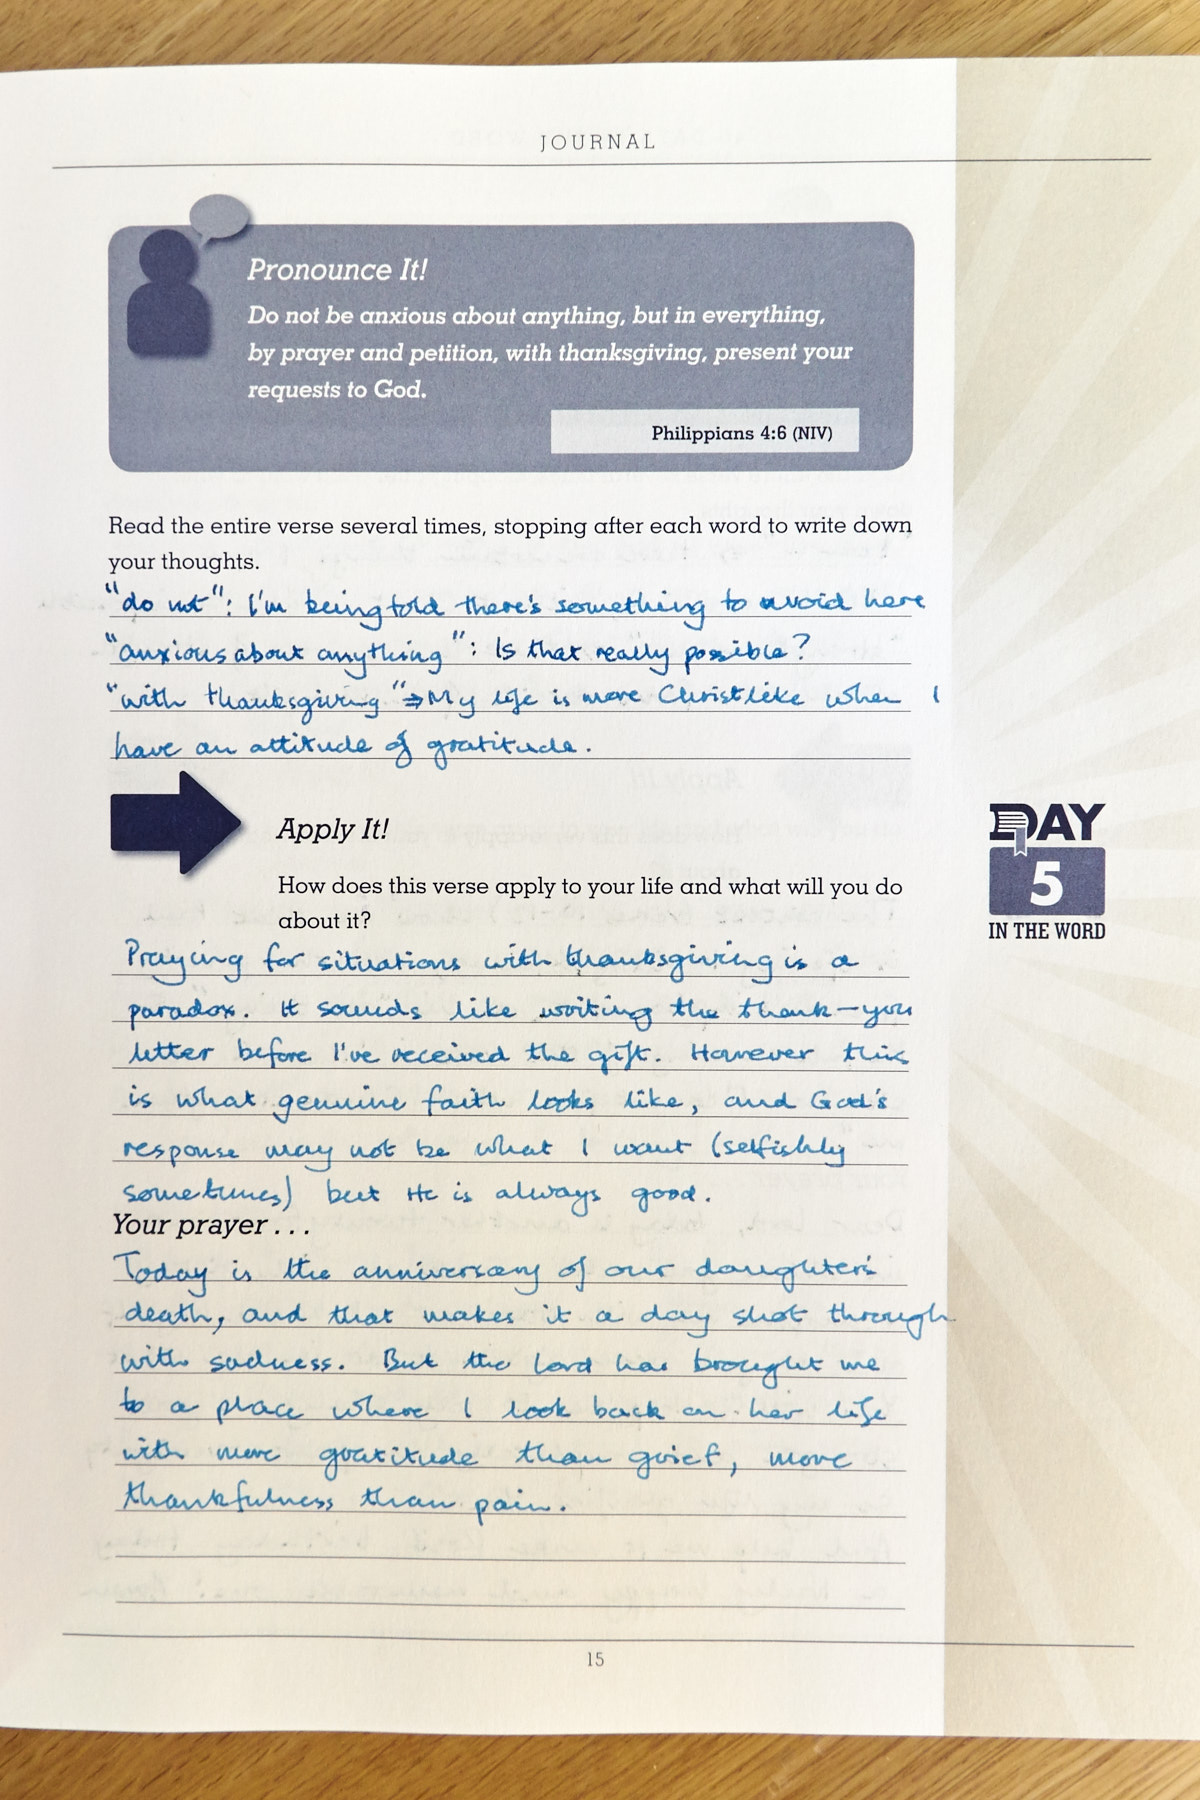 JOURNAL
Pronounce It!
Do not be anxious about anything, but in everything,
by prayer and petition, with thanksgiving, present your
requests to God.
Philippians 4:6 (NIV)
Read the entire verse several times, stopping after each word to write down
your thoughts.
"do not": I'm being told there's something to avoid here
"anxious about anything": Is that really possible?
"with thanksgiving" ⇒ My life is more Christlike when I
have an attitude of gratitude.
Apply It!
How does this verse apply to your life and what will you do
about it?
Praying for situations with thanksgiving is a
paradox. It sounds like writing the thank-you
letter before I've received the gift. However this
is what genuine faith looks like, and God's
response may not be what I want (selfishly
sometimes) but He is always good.
Your prayer . . .
Today is the anniversary of our daughter's
death, and that makes it a day shot through
with sadness. But the Lord has brought me
to a place where I look back on her life
with more gratitude than grief, more
thankfulness than pain.
DAY
5
IN THE WORD
15